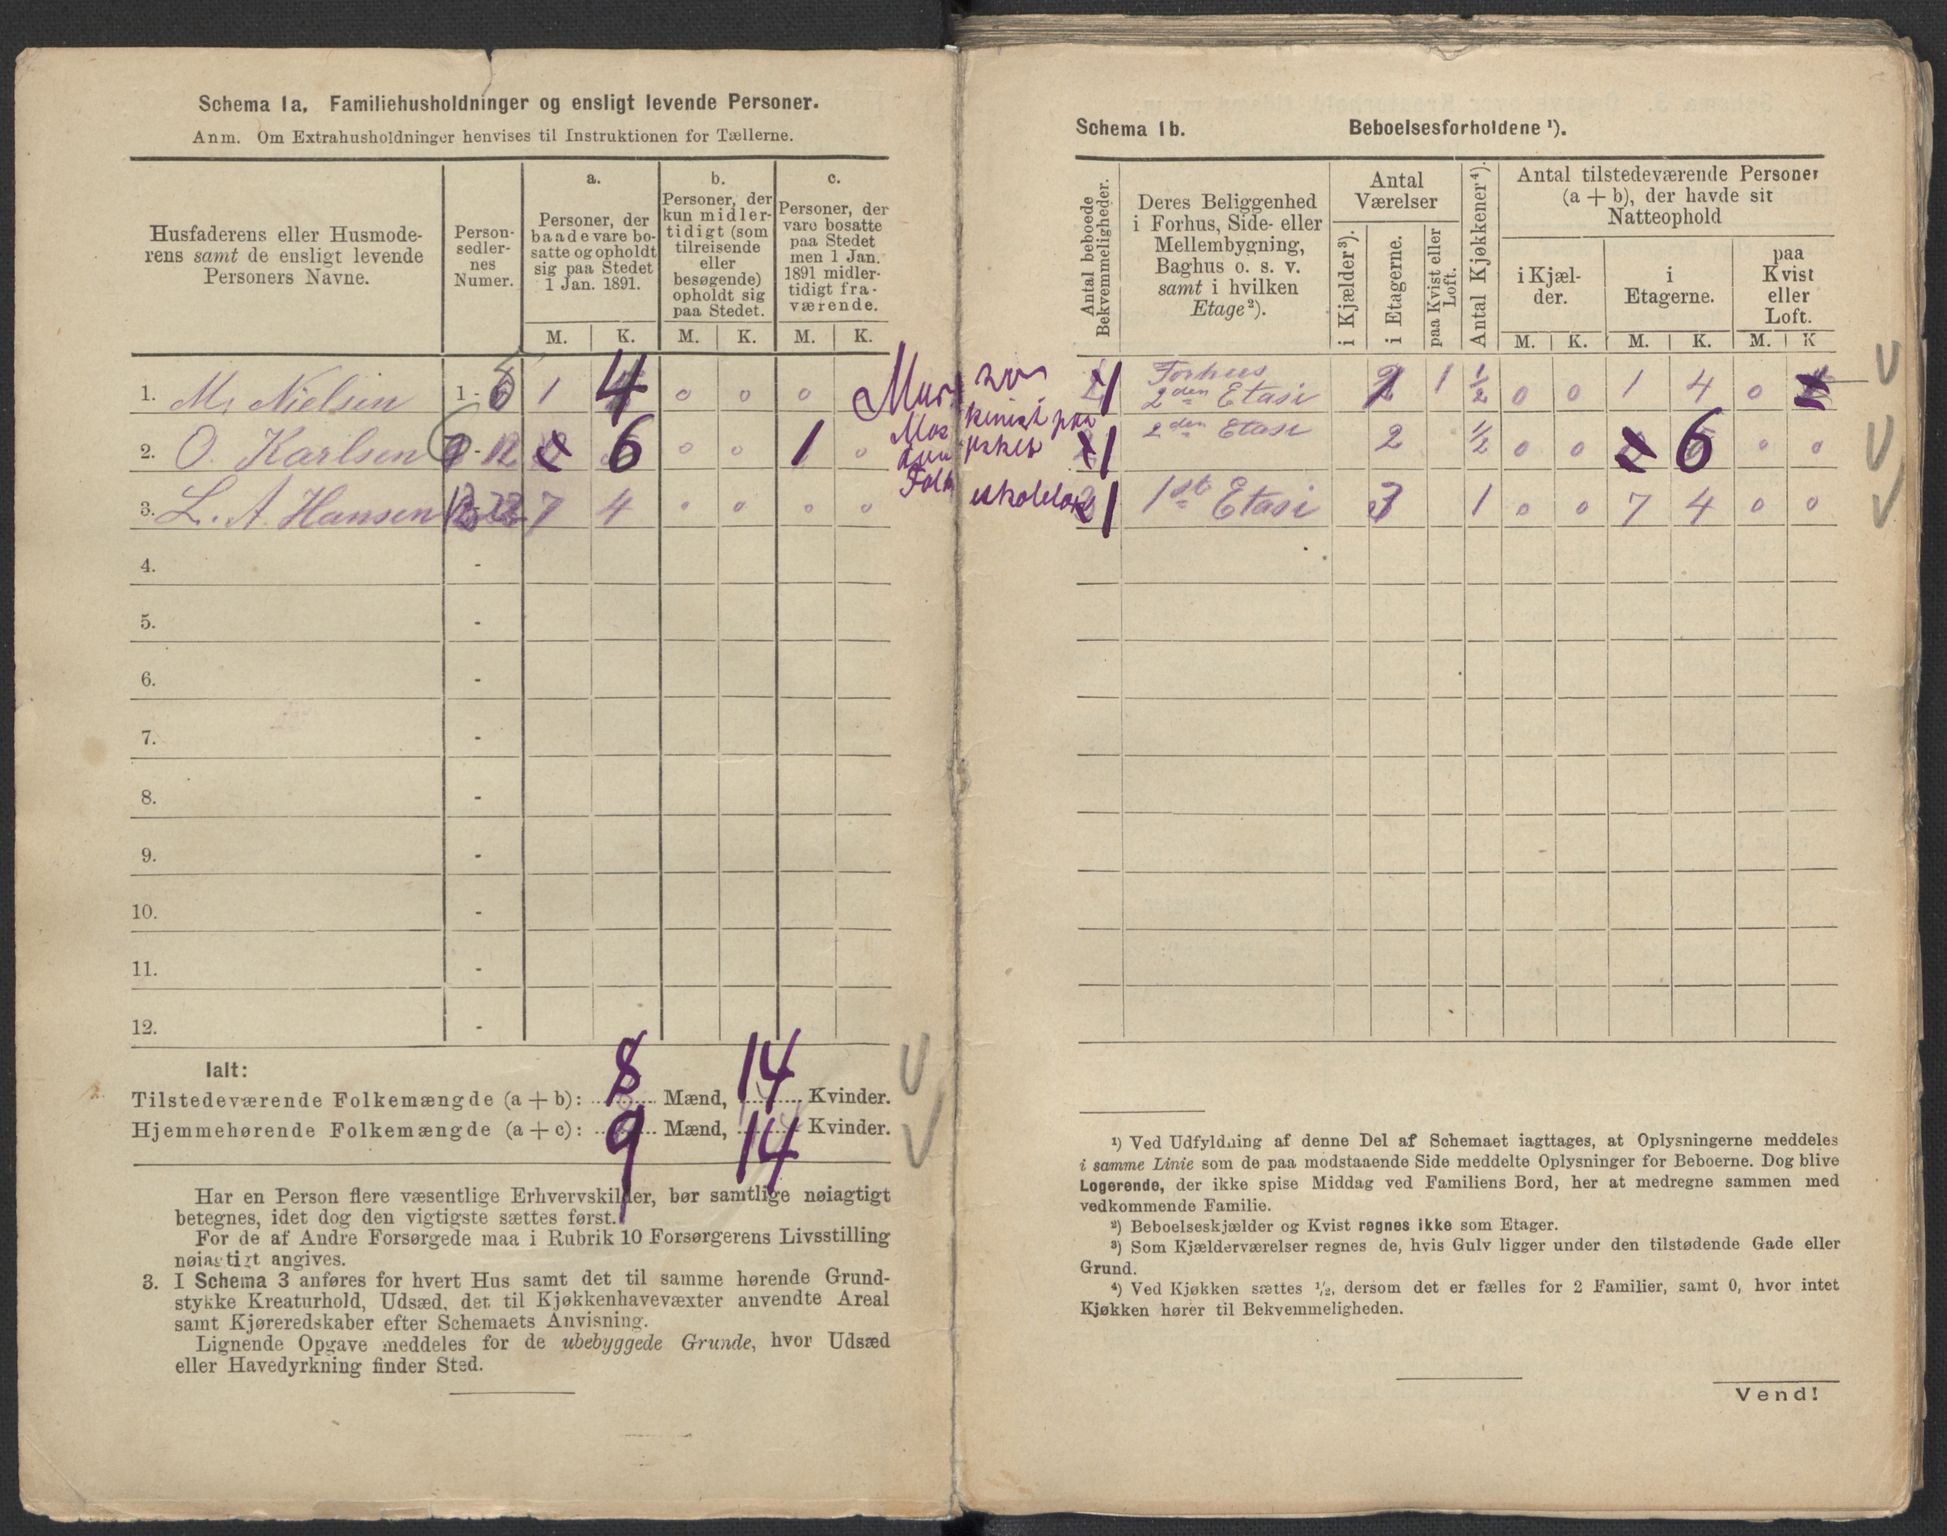 Schema 1a. Familiehusholdninger og ensligt levende Personer.
Anm. Om Extrahusholdninger henvises til Instruktionen for Tællerne.
Husfaderens eller Husmode-
rens samt de ensligt levende
Personers Navne.
Person-
sedler-
nes
Numer.
a.
Personer, der
baade vare bo-
satte og opholdt
sig paa Stedet
1 Jan. 1891.
b.
Personer, der
kun midler-
tidigt (som
tilreisende
eller
besøgende)
opholdt sig
paa Stedet.
c.
Personer, der
vare bosatte
paa Stedet
men 1 Jan.
1891 midler-
tidigt fra-
værende.
M. K. M. K. M. K.
1. M. Nielsen 1 - 1 4 0 0 0
2. O. Karlsen - 12 6 0 0 1 0
3. L. A. Hansen 7 4 0 0 0 0
4. -
5. -
6. -
7. -
8. -
9. -
10. -
11. -
12. -
Ialt:
Tilstedeværende Folkemængde (a + b): 8 Mænd, 14 Kvinder.
Hjemmehørende Folkemængde (a + c): 9 Mænd, 14 Kvinder.
Har en Person flere væsentlige Erhvervskilder, bør samtlige nøiagtigt
betegnes, idet dog den vigtigste sættes først.
For de af Andre Forsørgede maa i Rubrik 10 Forsørgerens Livsstilling
nøiagtigt angives.
3. I Schema 3 anføres for hvert Hus samt det til samme hørende Grund-
stykke Kreaturhold, Udsæd, det til Kjøkkenhavevæxter anvendte Areal
samt Kjøreredskaber efter Schemaets Anvisning.
Lignende Opgave meddeles for de ubebyggede Grunde, hvor Udsæd
eller Havedyrkning finder Sted.
Schema 1b. Beboelsesforholdene ¹).
Antal beboede
Bekvemmeligheder.
Deres Beliggenhed
i Forhus, Side- eller
Mellembygning,
Baghus o. s. v.
samt i hvilken
Etage²).
Antal
Værelser
i Kjælder³).
i Etagerne.
paa Kvist eller
Loft.
Antal Kjøkkener⁴).
Antal tilstedeværende Personer
(a + b), der havde sit
Natteophold
i Kjæl-
der.
i
Etagerne.
paa
Kvist
eller
Loft.
M. K. M. K. M. K
1 Forhus
2den Etasi 1 ½ 0 0 1 4 0
1 2den Etasi 2 ½ 0 0 6 0 0
1 1st Etasi 3 1 0 0 7 4 0 0
¹) Ved Udfyldning af denne Del af Schemaet iagttages, at Oplysningerne meddeles
i samme Linie som de paa modstaaende Side meddelte Oplysninger for Beboerne. Dog blive
Logerende, der ikke spise Middag ved Familiens Bord, her at medregne sammen med
vedkommende Familie.
²) Beboelseskjælder og Kvist regnes ikke som Etager.
³) Som Kjælderværelser regnes de, hvis Gulv ligger under den tilstødende Gade eller
Grund.
⁴) Ved Kjøkken sættes ½, dersom det er fælles for 2 Familier, samt 0, hvor intet
Kjøkken hører til Bekvemmeligheden.
Vend!